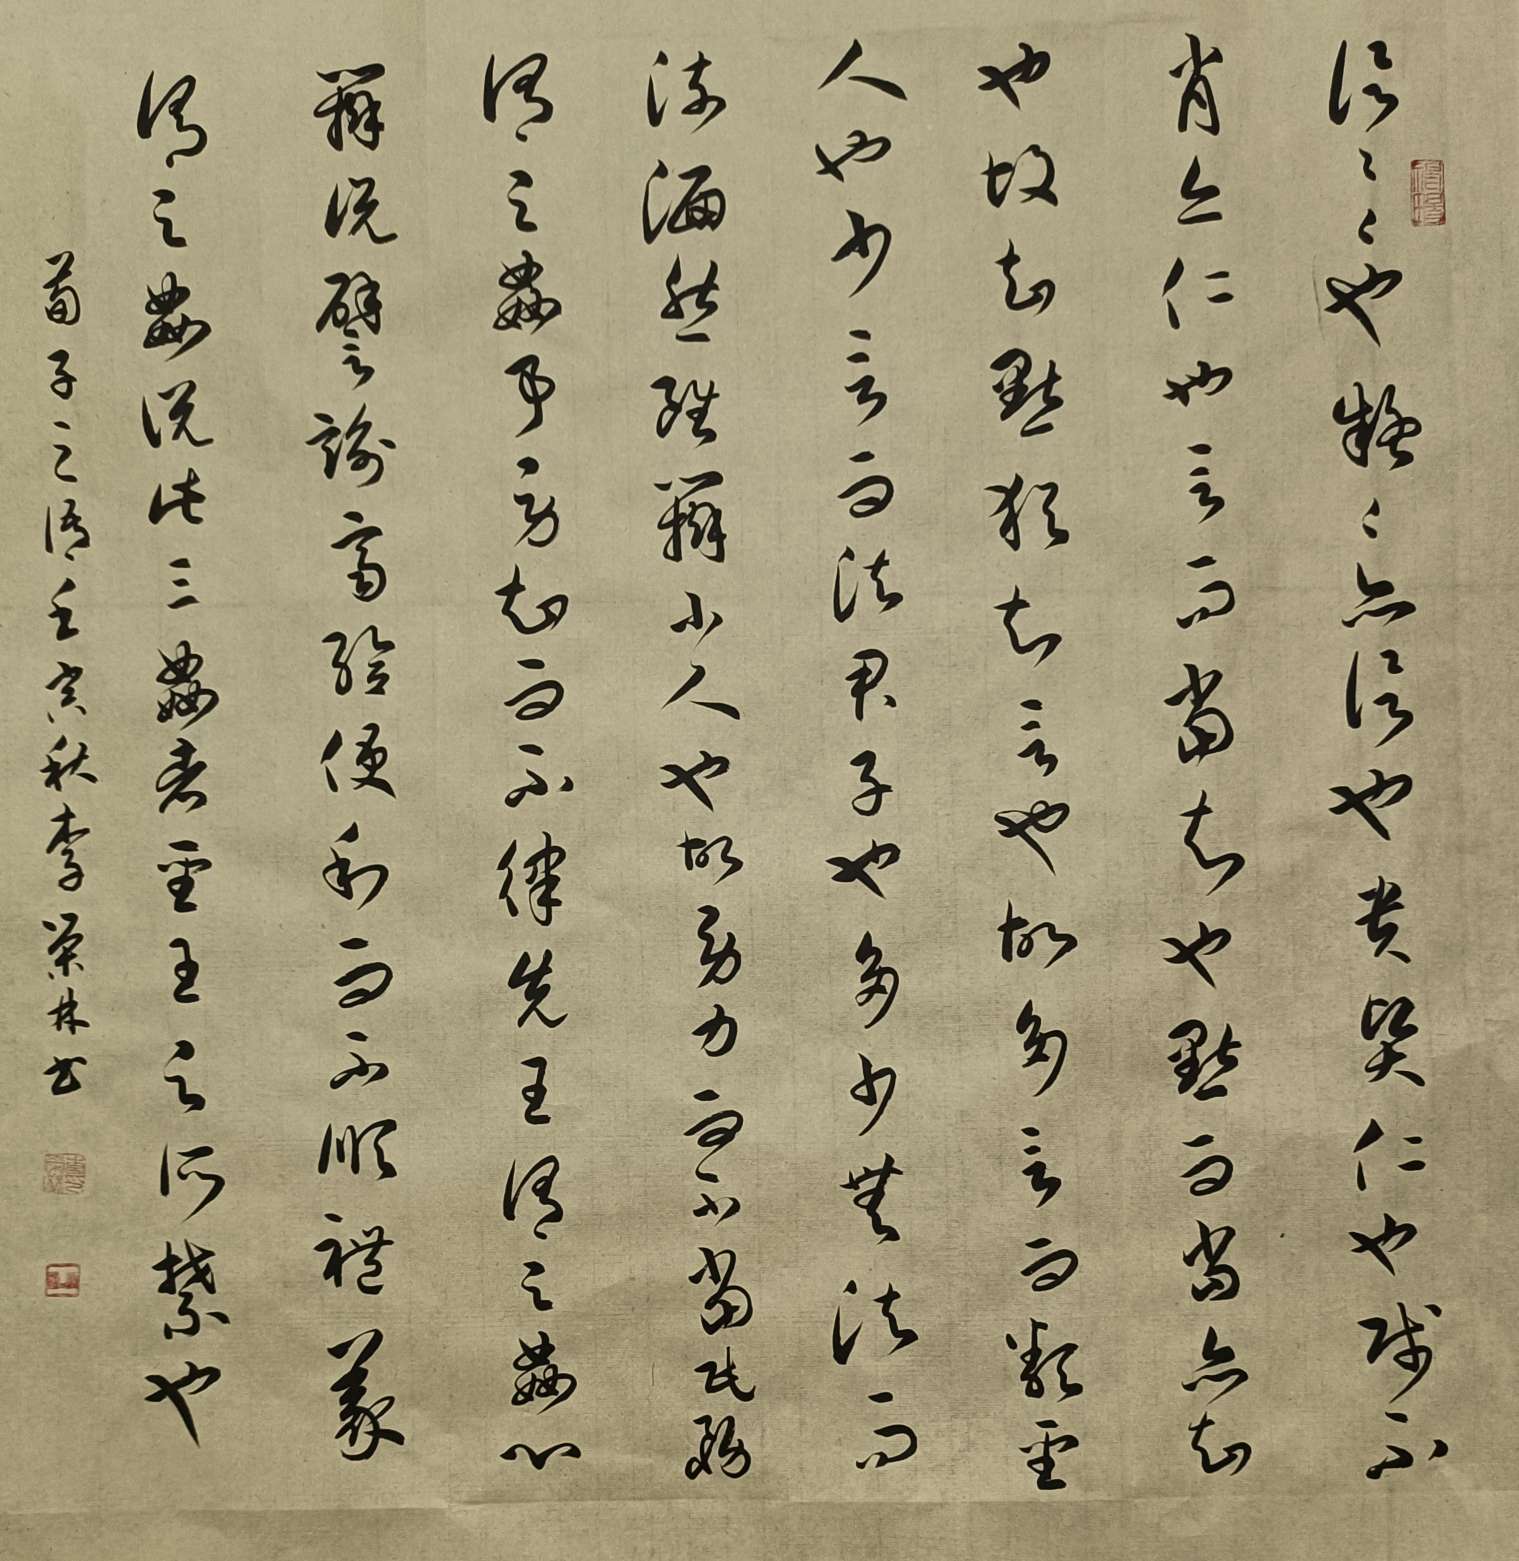 信信信也疑疑亦信也贵贤仁也贱不
肖亦仁也言而当知也默而当亦知
也故知默犹知言也故多言而类圣
人也少言而法君子也多少无法而
流湎然虽辩小人也故劳力而不当民务
谓之奸事劳知而不律先王谓之奸心
辩说譬谕齐给便利而不顺礼义
谓之奸说此三奸者圣王之所禁也
荀子之语壬寅秋李荣林书